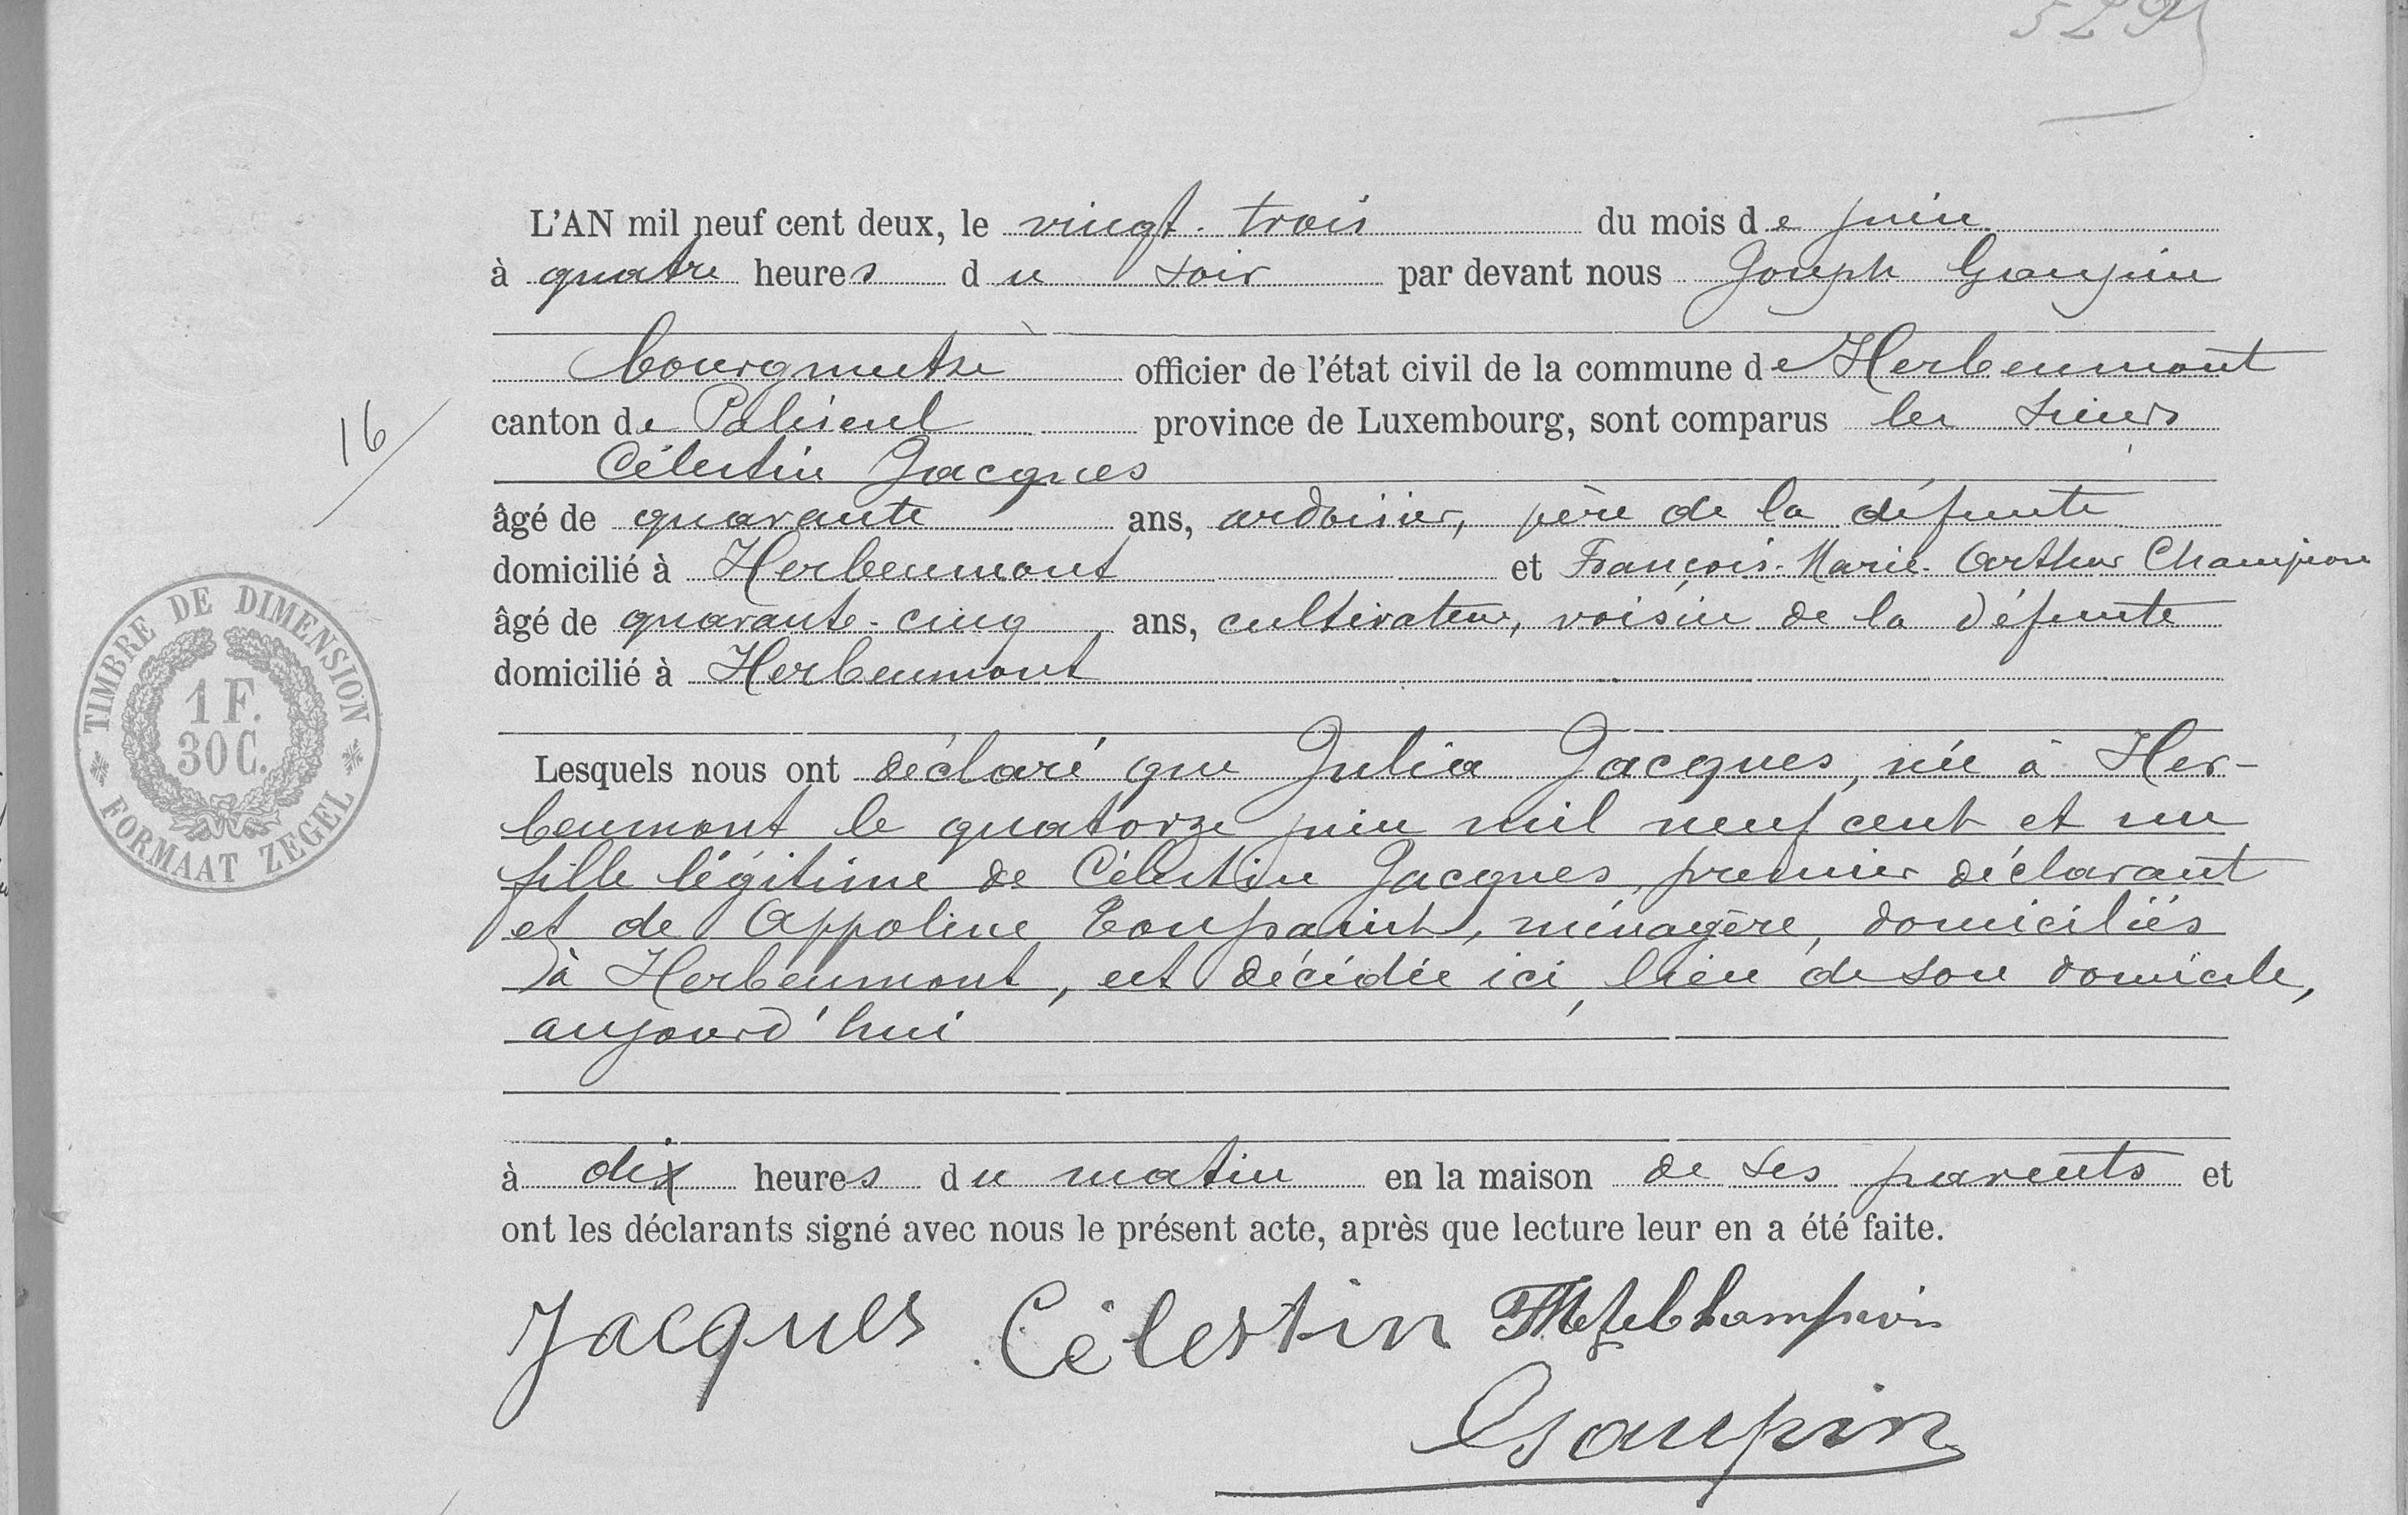 529
L'AN mil neuf cent deux, le vingt-trois du mois de juin
à quatre heures du soir par devant nous Joseph Gaupin
bourgmestre officier de l'état civil de la commune de Herbeumont
canton de Paliseul province de Luxembourg, sont comparus les sieurs
16
Célestin Jacques
âgé de quarante ans, ardoisier, père de la défunte
domicilié à Herbeumont et François-Marie-Arthur Champion
âgé de quarante-cinq ans, cultivateur, voisin de la défunte
domicilié à Herbeumont
TIMBRE DE DIMENSION
1 F.
30 C.
FORMAAT ZEGEL
Lesquels nous ont déclaré que Julia Jacques, née à Her-
beumont le quatorze juin mil neuf cent et un
fille légitime de Célestin Jacques, premier déclarant
et de Appoline Toussaint, ménagère, domiciliés
à Herbeumont, est décédée ici, lieu de son domicile,
aujourd'hui
à dix heures du matin en la maison de ses parents et
ont les déclarants signé avec nous le présent acte, après que lecture leur en a été faite.
Jacques Célestin Champion
Gaupin